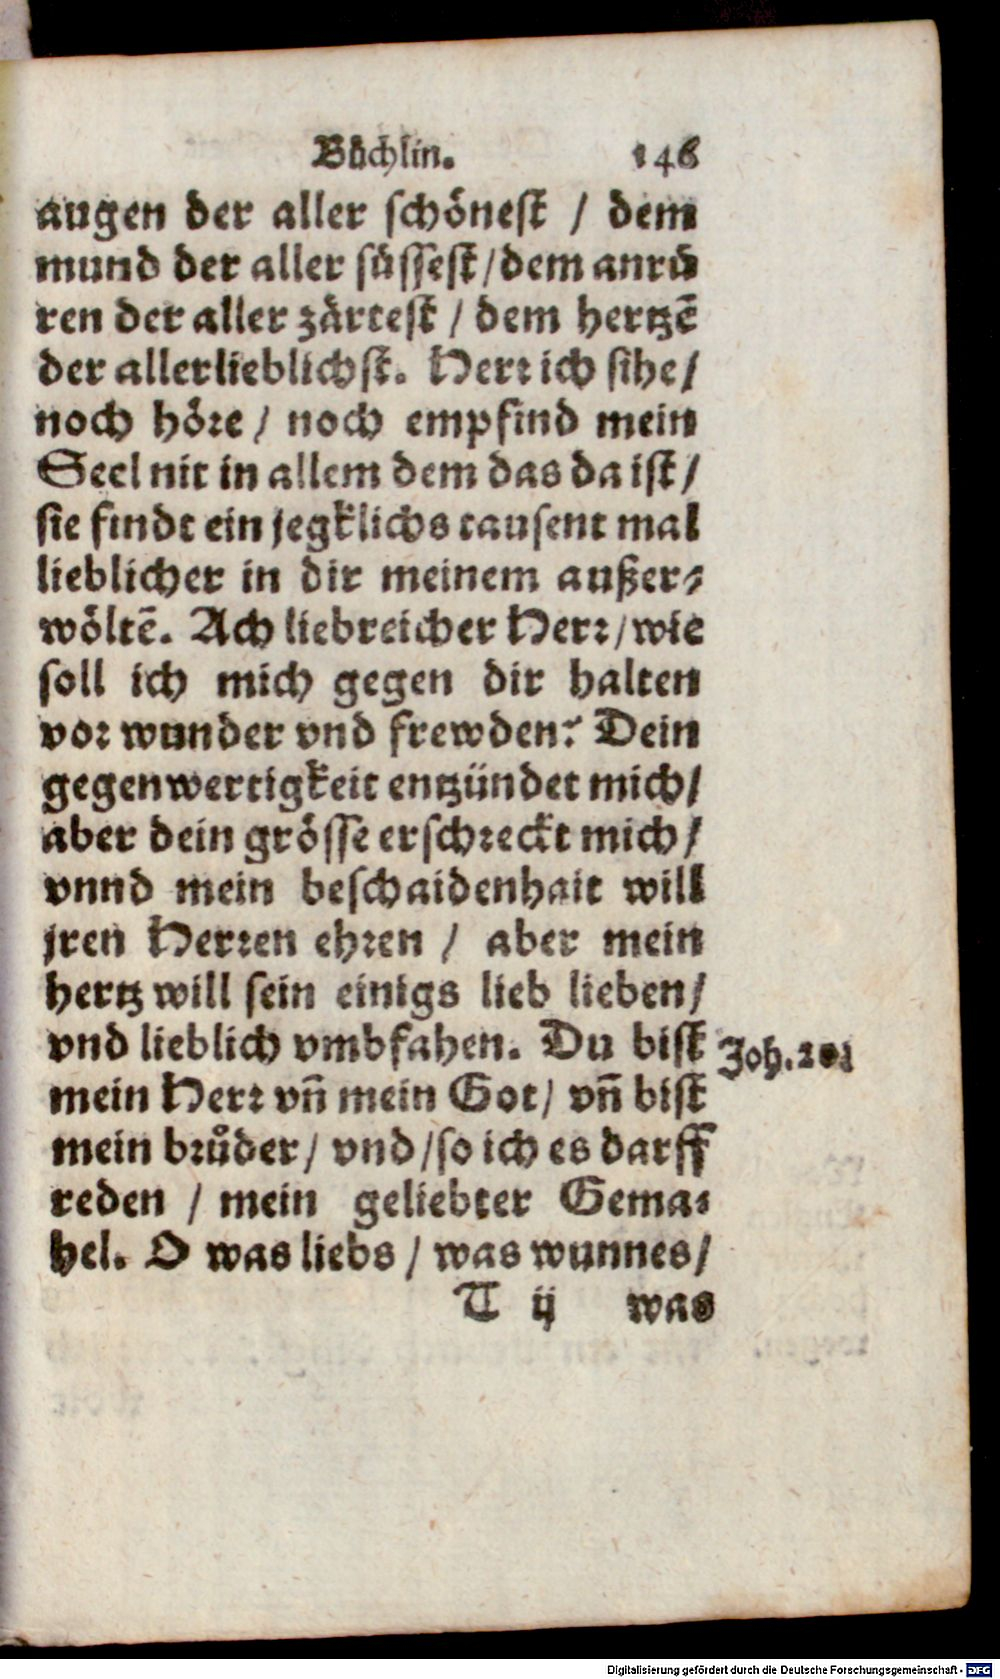 Bůchlin. 146
augen der aller schönest / dem
mund der aller süssest / dem anrü
ren der aller zärtest / dem hertzē
der allerlieblichst. Herr ich sihe /
noch höre / noch empfind mein
Seel nit in allem dem das da ist /
sie findt ein jegklichs tausent mal
lieblicher in dir meinem außer-
wöltē. Ach liebreicher Herr / wie
soll ich mich gegen dir halten
vor wunder vnd frewden? Dein
gegenwertigkeit entzündet mich /
aber dein grösse erschreckt mich /
vnnd mein beschaidenhait will
jren Herren ehren / aber mein
hertz will sein einigs lieb lieben /
vnd lieblich vmbfahen. Du bist
Joh.
mein Herr vñ mein Got / vñ bist
mein brůder / vnd / so ich es darff
reden / mein geliebter Gema-
hel. O was liebs / was wunnes /
T ij was
Digitalisierung gefördert durch die Deutsche Forschungsgemeinschaft - DFG